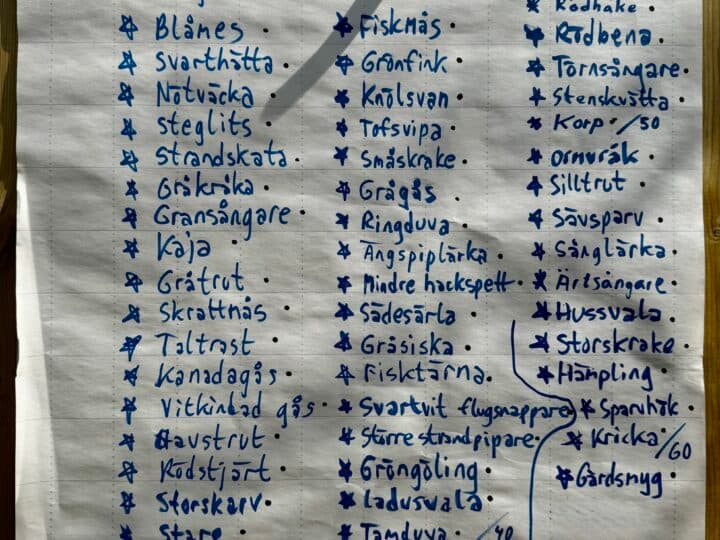 Blåmes
Svarthätta
Nötväcka
Steglits
Strandskata
Gråkråka
Gransångare
Kaja
Gråtrut
Skrattmås
Taltrast
Kanadagås
Vitkindad gås
Havstrut
Rödstjärt
Storskarv
Stare
Fiskmås
Grönfink
Knölsvan
Tofsvipa
Småskrake
Grågås
Ringduva
Ängspiplärka
Mindre hackspett
Sädesärla
Gråsiska
Fisktärna
Svartvit flugsnappare
Större strandpipare
Gröngöling
Ladusvala
Tamduva /40
Rödhake
Rödbena
Törnsångare
Stenskvätta
Korp /50
Ormvråk
Silltrut
Sävsparv
Sånglärka
Ärtsångare
Hussvala
Storskrake
Hämpling
Sparvhök
Kricka /60
Gärdsmyg